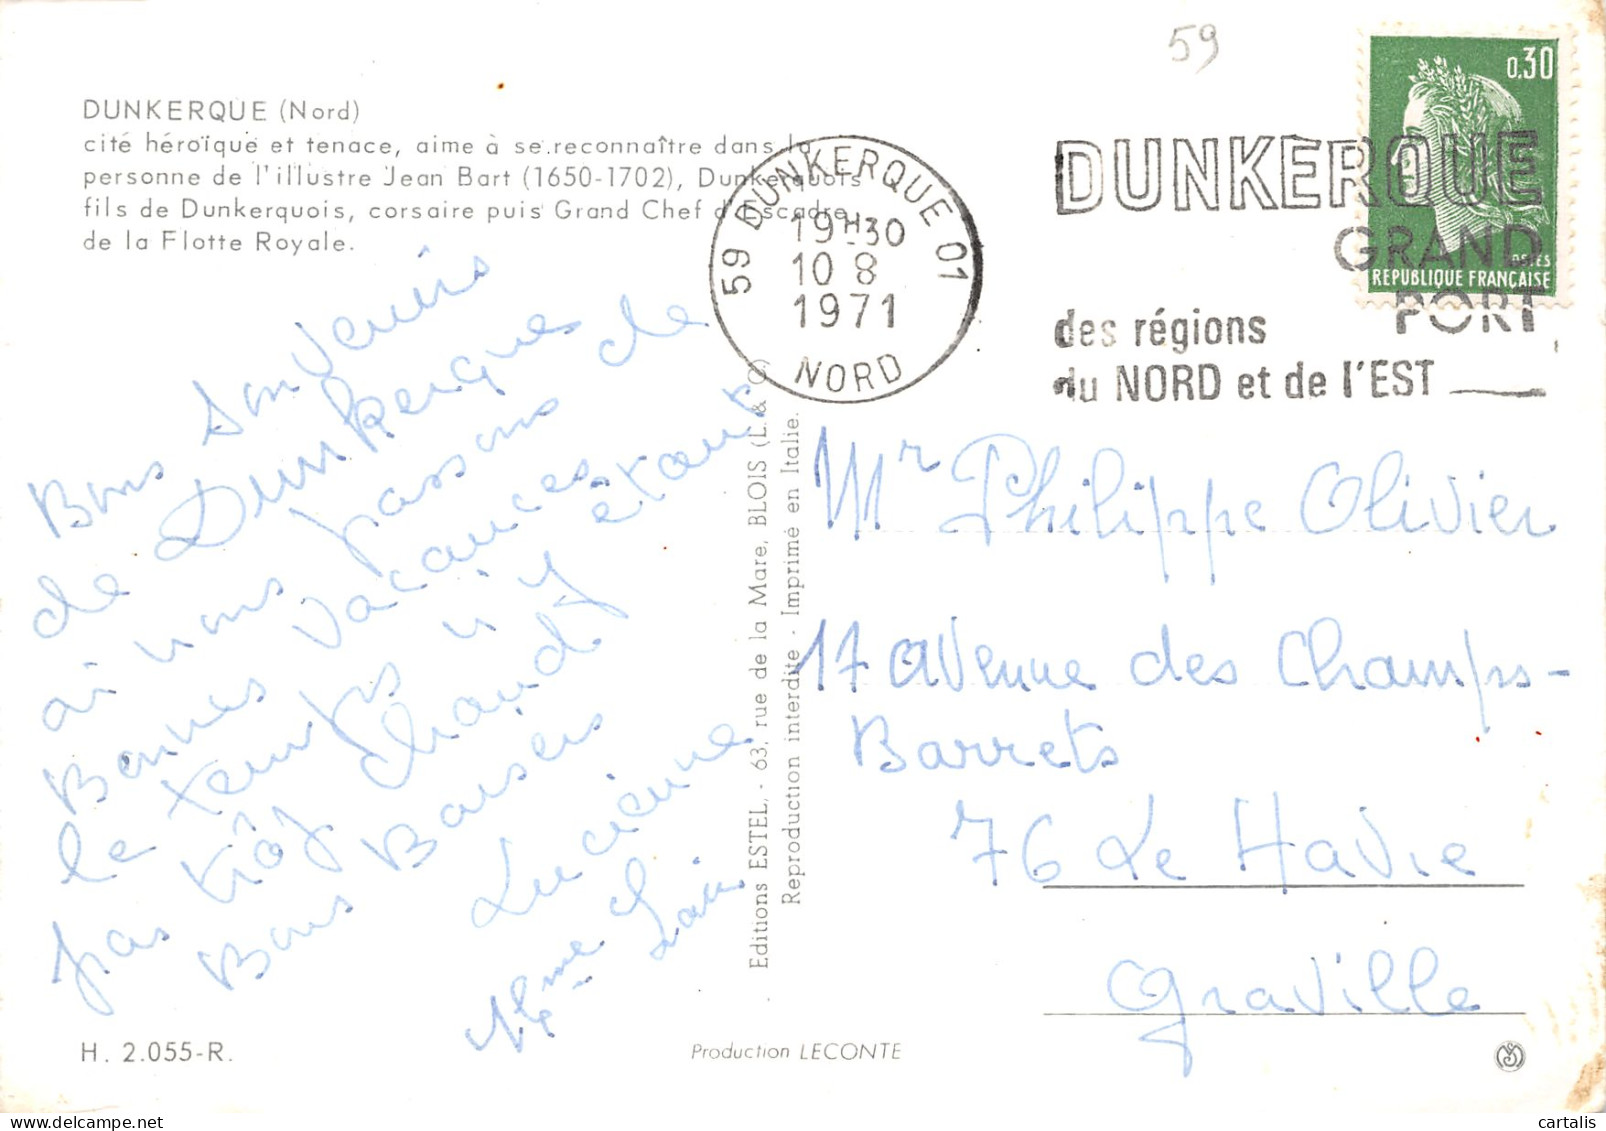 59
DUNKERQUE (Nord)
cité héroïque et tenace, aime à se reconnaître dans la
personne de l'illustre Jean Bart (1650-1702), Dunkerquois
fils de Dunkerquois, corsaire puis Grand Chef d'Escadre
de la Flotte Royale.
59 DUNKERQUE 01
19H30
10 8
1971
NORD
DUNKERQUE
GRAND
PORT
des régions
du NORD et de l'EST
0,30
POSTES
REPUBLIQUE FRANÇAISE
Bons Souvenirs
de Dunkerques
ai nous passons de
Bonnes vacances
le temps n'y étant
pas trôp chaud
Bons Baisers
Lucienne
Mme
Editions ESTEL, - 63, rue de la Mare, BLOIS (L. & C.)
Reproduction interdite - Imprimé en Italie.
Mr Philippe Olivier
17 avenue des Champs-
Barrets
76 Le Havre
Graville
H. 2.055-R.
Production LECONTE
cartalis